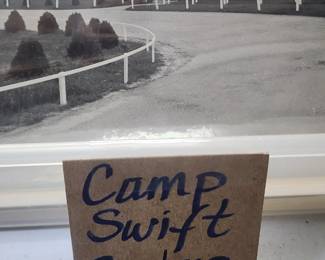 Camp
Swift